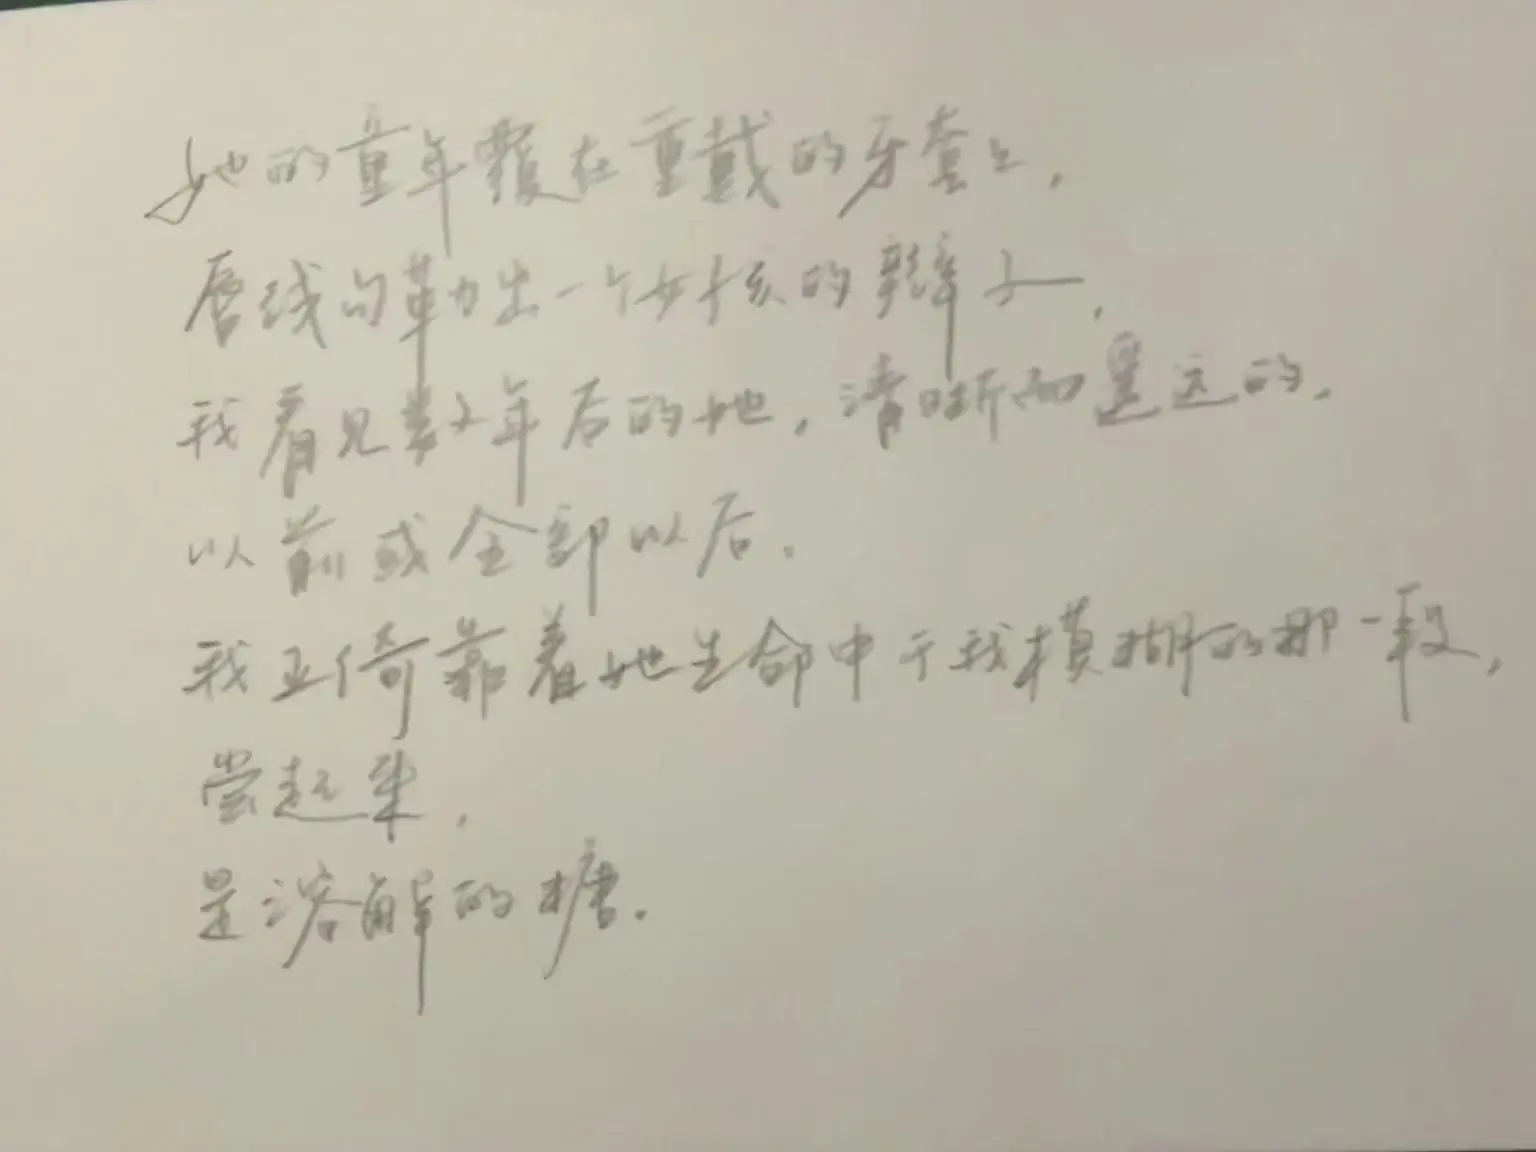 她的童年覆在重戴的牙套上，
唇线勾勒出一个女孩的辫子，
我看见数年后的她，清晰而遥远的，
以前或全部以后。
我正倚靠着她生命中于我模糊的那一段，
尝起来，
是溶解的糖。